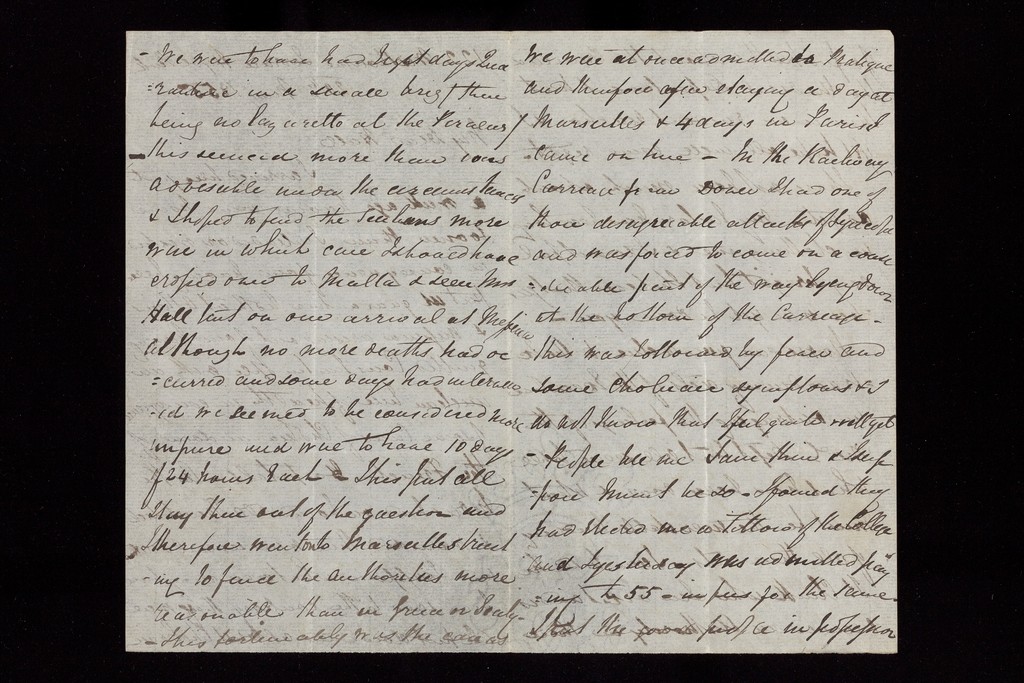 - We were to have had eight days Qua
=rantine in a small brig (there
being no Lazaretto at the Piraeus)
- this seemed more than was
advisable under the circumstances
& I hoped to find the Sicilians more
wise in which case I should have
crossed over to Malta & seen Mrs
Hall but on our arrival at Messina
although no more deaths had oc
=curred and some days had interven
=ed we seemed to be considered more
impure and were to have 10 days
of 24 hours each - This put all
stay there out of the question and
I therefore went on to Marseilles trust
-ing to find the authorities more
reasonable than in Greece or Sicily -
- This fortunately was the case as
We were at once admitted to Pratique
and therefore after staying a day at
Marseilles & 4 days in Paris I
came on here - In the Railway
Carriage from Dover I had one of
those disagreeable attacks of
and was forced to come on a consi
=derable part of the way lying down
at the bottom of the Carriage -
this was followed by fever and
some Choleraic symptoms & I
do not know that I feel quite well yet
- People tell me I am thin & there
fore I must be so - I found they
had elected me a Fellow of the College
and I yesterday was admitted pay
=ing £ 55 - in fees for the same -
I put the in possession